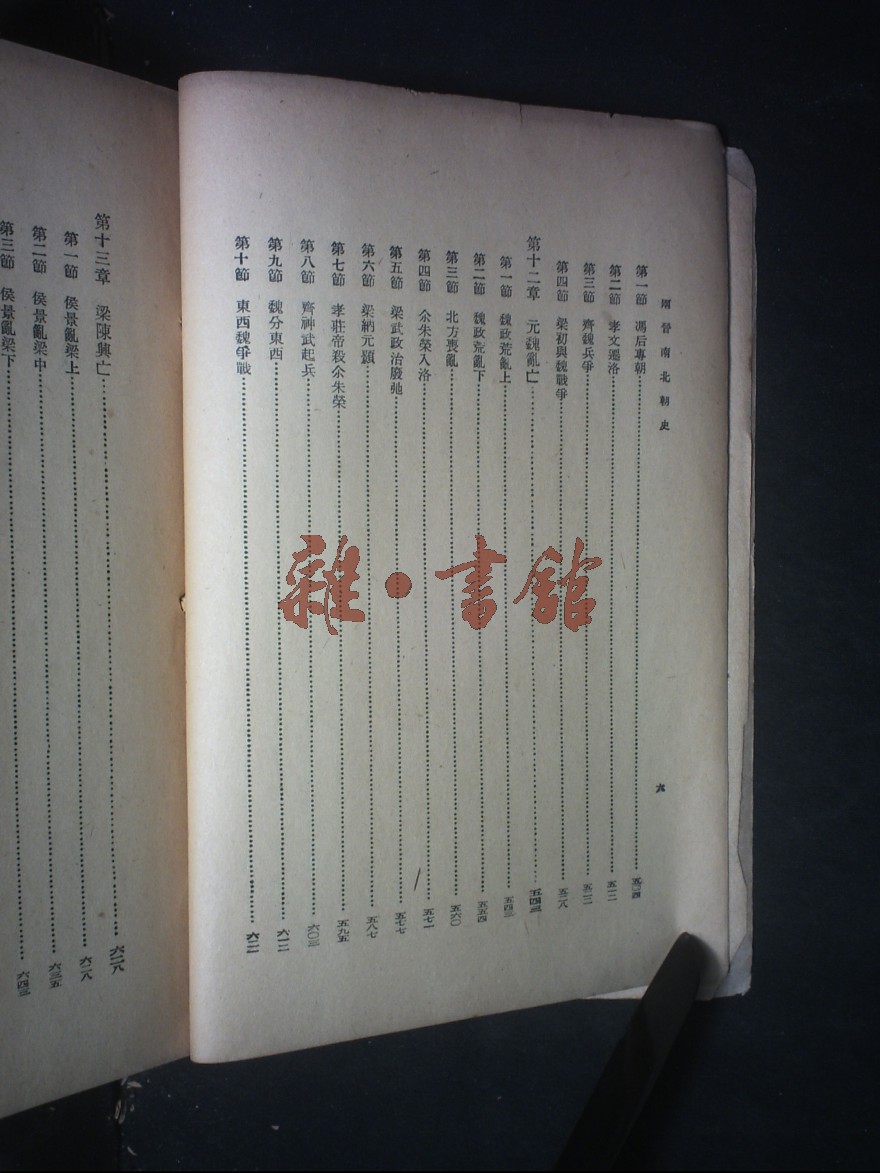 兩晉南北朝史
六
第一節　馮后專朝 五〇四
第二節　孝文遷洛 五一二
第三節　齊魏兵爭
第四節　梁初與魏戰爭 五二八
第十二章　元魏亂亡 五四三
第一節　魏政荒亂上 五四三
第二節　魏政荒亂下 五五四
第三節　北方喪亂 五六〇
第四節　尒朱榮入洛 五七一
第五節　梁武政治廢弛 五七七
第六節　梁納元顥 五八七
第七節　孝莊帝殺尒朱榮 五九五
第八節　齊神武起兵 六〇三
第九節　魏分東西 六一三
第十節　東西魏爭戰
第十三章　梁陳興亡 六二八
第一節　侯景亂梁上 六二八
第二節　侯景亂梁中 六三五
第三節　侯景亂梁下 六四三
雜·書館